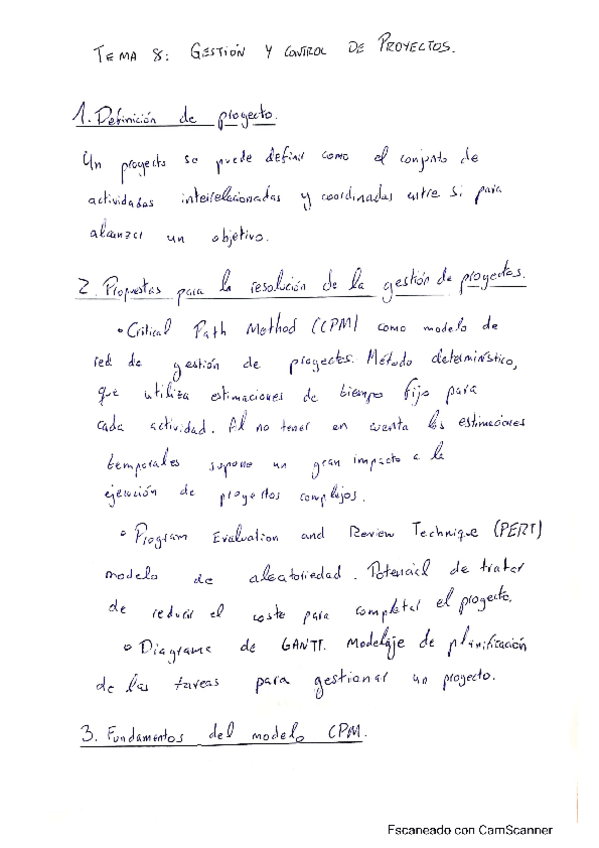 TEMA 8: GESTIÓN Y CONTROL DE PROYECTOS.
1. Definición de proyecto.
Un proyecto se puede definir como el conjunto de
actividades interrelacionadas y coordinadas entre si para
alcanzar un objetivo.
2. Propuestas para la resolución de la gestión de proyectos.
• Critical Path Method (CPM) como modelo de
red de gestión de proyectos. Método determinístico,
que utiliza estimaciones de tiempo fijo para
cada actividad. Al no tener en cuenta las estimaciones
temporales supone un gran impacto a la
ejecución de proyectos complejos.
• Program Evaluation and Review Technique (PERT)
modelo de aleatoriedad. Potencial de tratar
de reducir el coste para completar el proyecto.
• Diagrama de GANTT. Modelaje de planificación
de las tareas para gestionar un proyecto.
3. Fundamentos del modelo CPM.
Escaneado con CamScanner